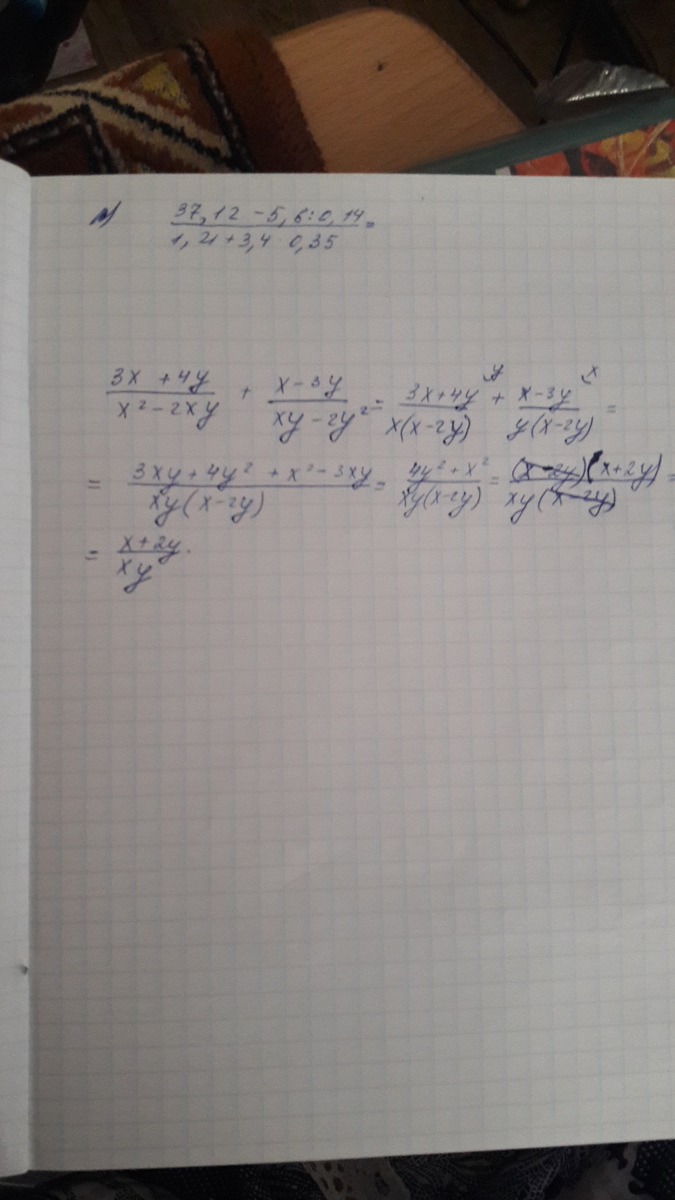 37,12 - 5,6 : 0,14 =
1,21 + 3,4 0,35
3x + 4y / x² - 2xy + x - 3y / xy - 2y² = 3x + 4y / x(x - 2y) y + x - 3y / y(x - 2y) x =
= 3xy + 4y² + x² - 3xy / xy(x - 2y) = 4y² + x² / xy(x - 2y) = (x - 2y)(x + 2y) / xy(x - 2y) =
= x + 2y / xy .